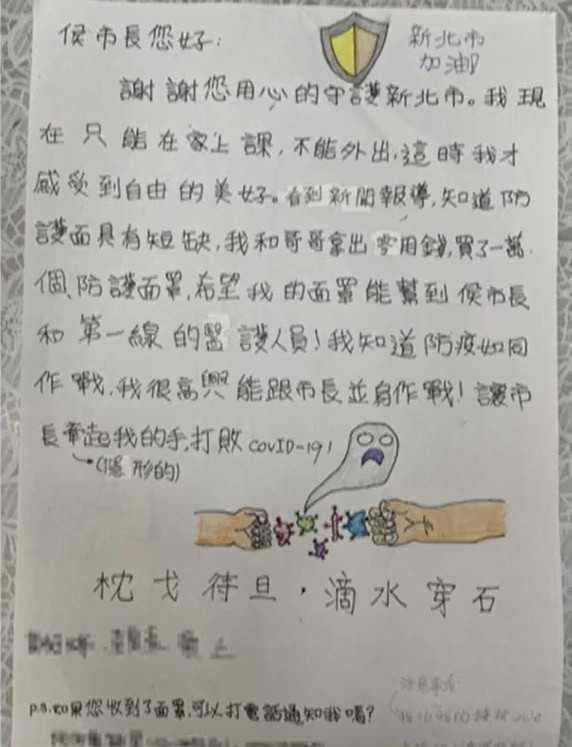 侯市長您好:
新北市
加油!
謝謝您用心的守護新北市。我現
在只能在家上課,不能外出,這時我才
感受到自由的美好。看到新聞報導,知道防
護面具有短缺,我和哥哥拿出零用錢,買了一萬
個防護面罩,希望我的面罩能幫到侯市長
和第一線的醫護人員!我知道防疫如同
作戰,我很高興能跟市長並肩作戰!讓市
長牽起我的手,打敗COVID-19!
(隱形的)
枕戈待旦,滴水穿石
p.s.如果您收到了面罩,可以打電話通知我嗎?